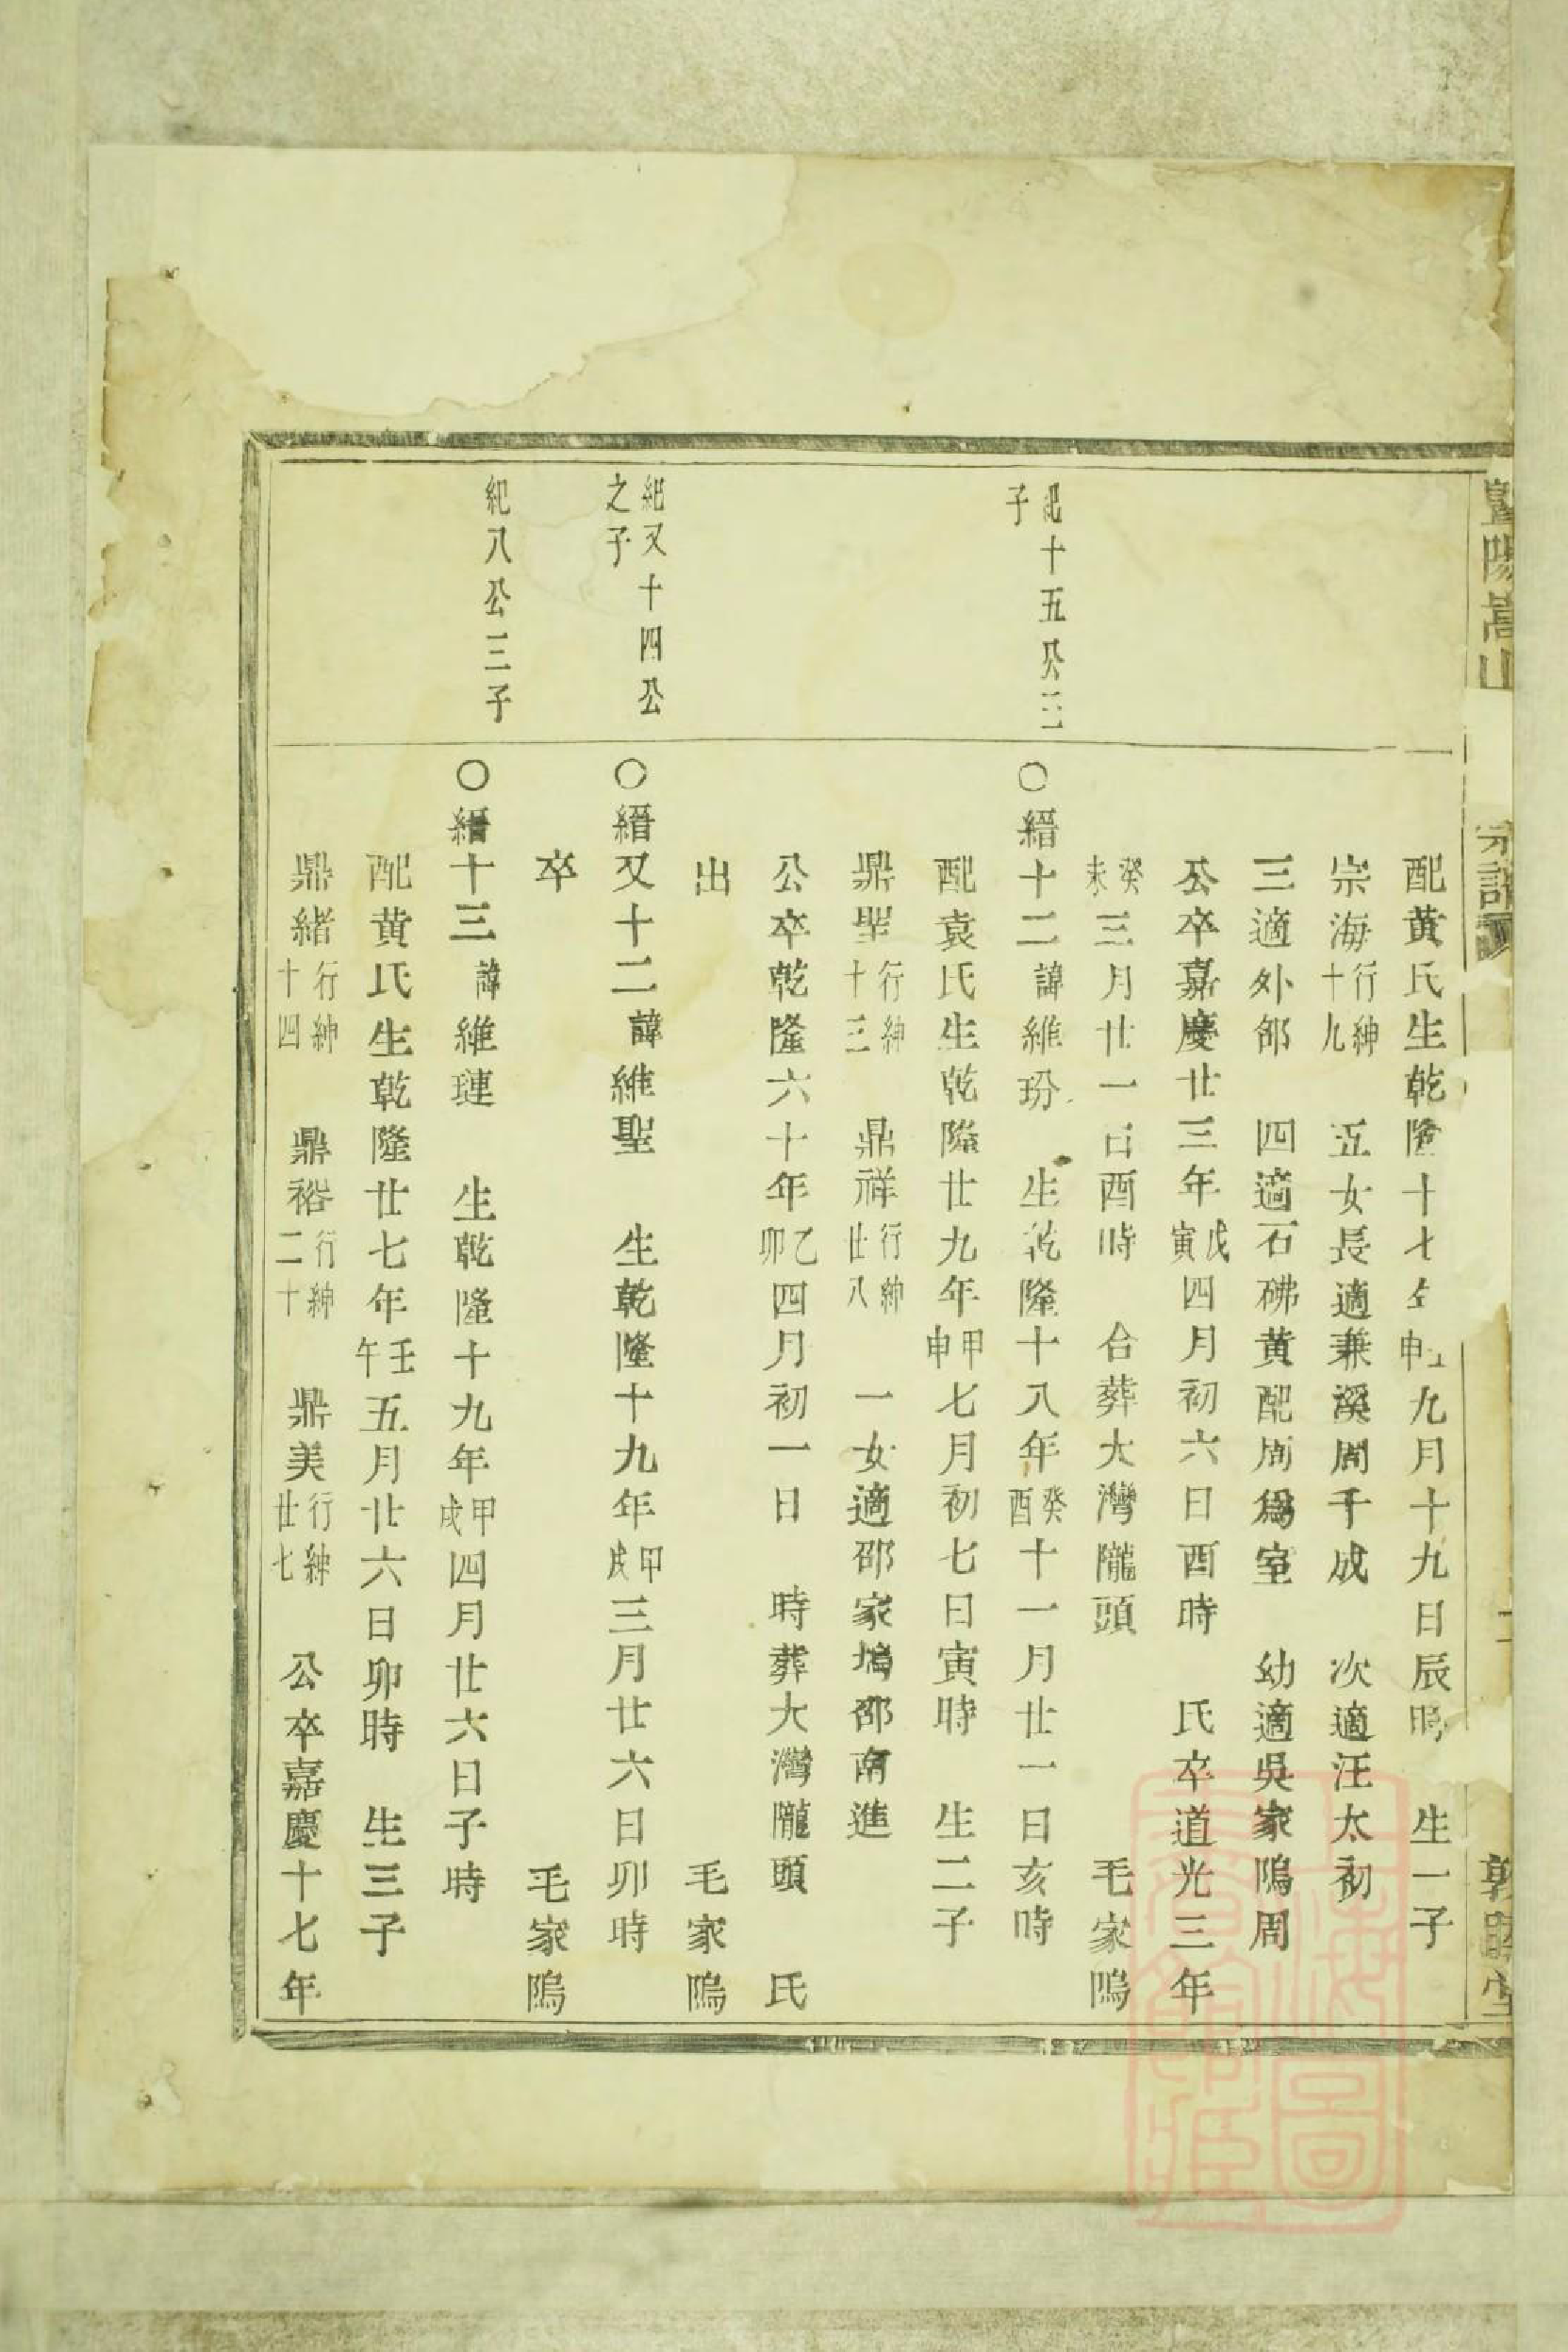 暨陽嵩山
宗譜
敦睦堂
配黃氏生乾隆十七年申九月十九日辰時　生一子
宗海行紳十九　五女長適兼溪周千成　次適汪太初
三適外邰　四適石硪黃配周爲室　幼適吳家隖周
公卒嘉慶廿三年戊寅四月初六日酉時　氏卒道光三年
癸未三月廿一日酉時　合葬大灣隴頭　毛家隖
紀十五公三子
○縉十二諱維玢　生乾隆十八年癸酉十一月廿一日亥時
配袁氏生乾隆廿九年甲申七月初七日寅時　生二子
鼎聖行紳十三　鼎祥行紳廿八　一女適邵家塢邵南進
公卒乾隆六十年乙卯四月初一日　時葬大灣隴頭　氏
出　毛家隖
紀又十四公之子
○縉又十二諱維聖　生乾隆十九年甲戌三月廿六日卯時
卒　毛家隖
紀八公三子
○縉十三諱維璉　生乾隆十九年甲戌四月廿六日子時
配黃氏生乾隆廿七年壬午五月廿六日卯時　生三子
鼎緒行紳十四　鼎裕行紳二十　鼎美行紳廿七　公卒嘉慶十七年